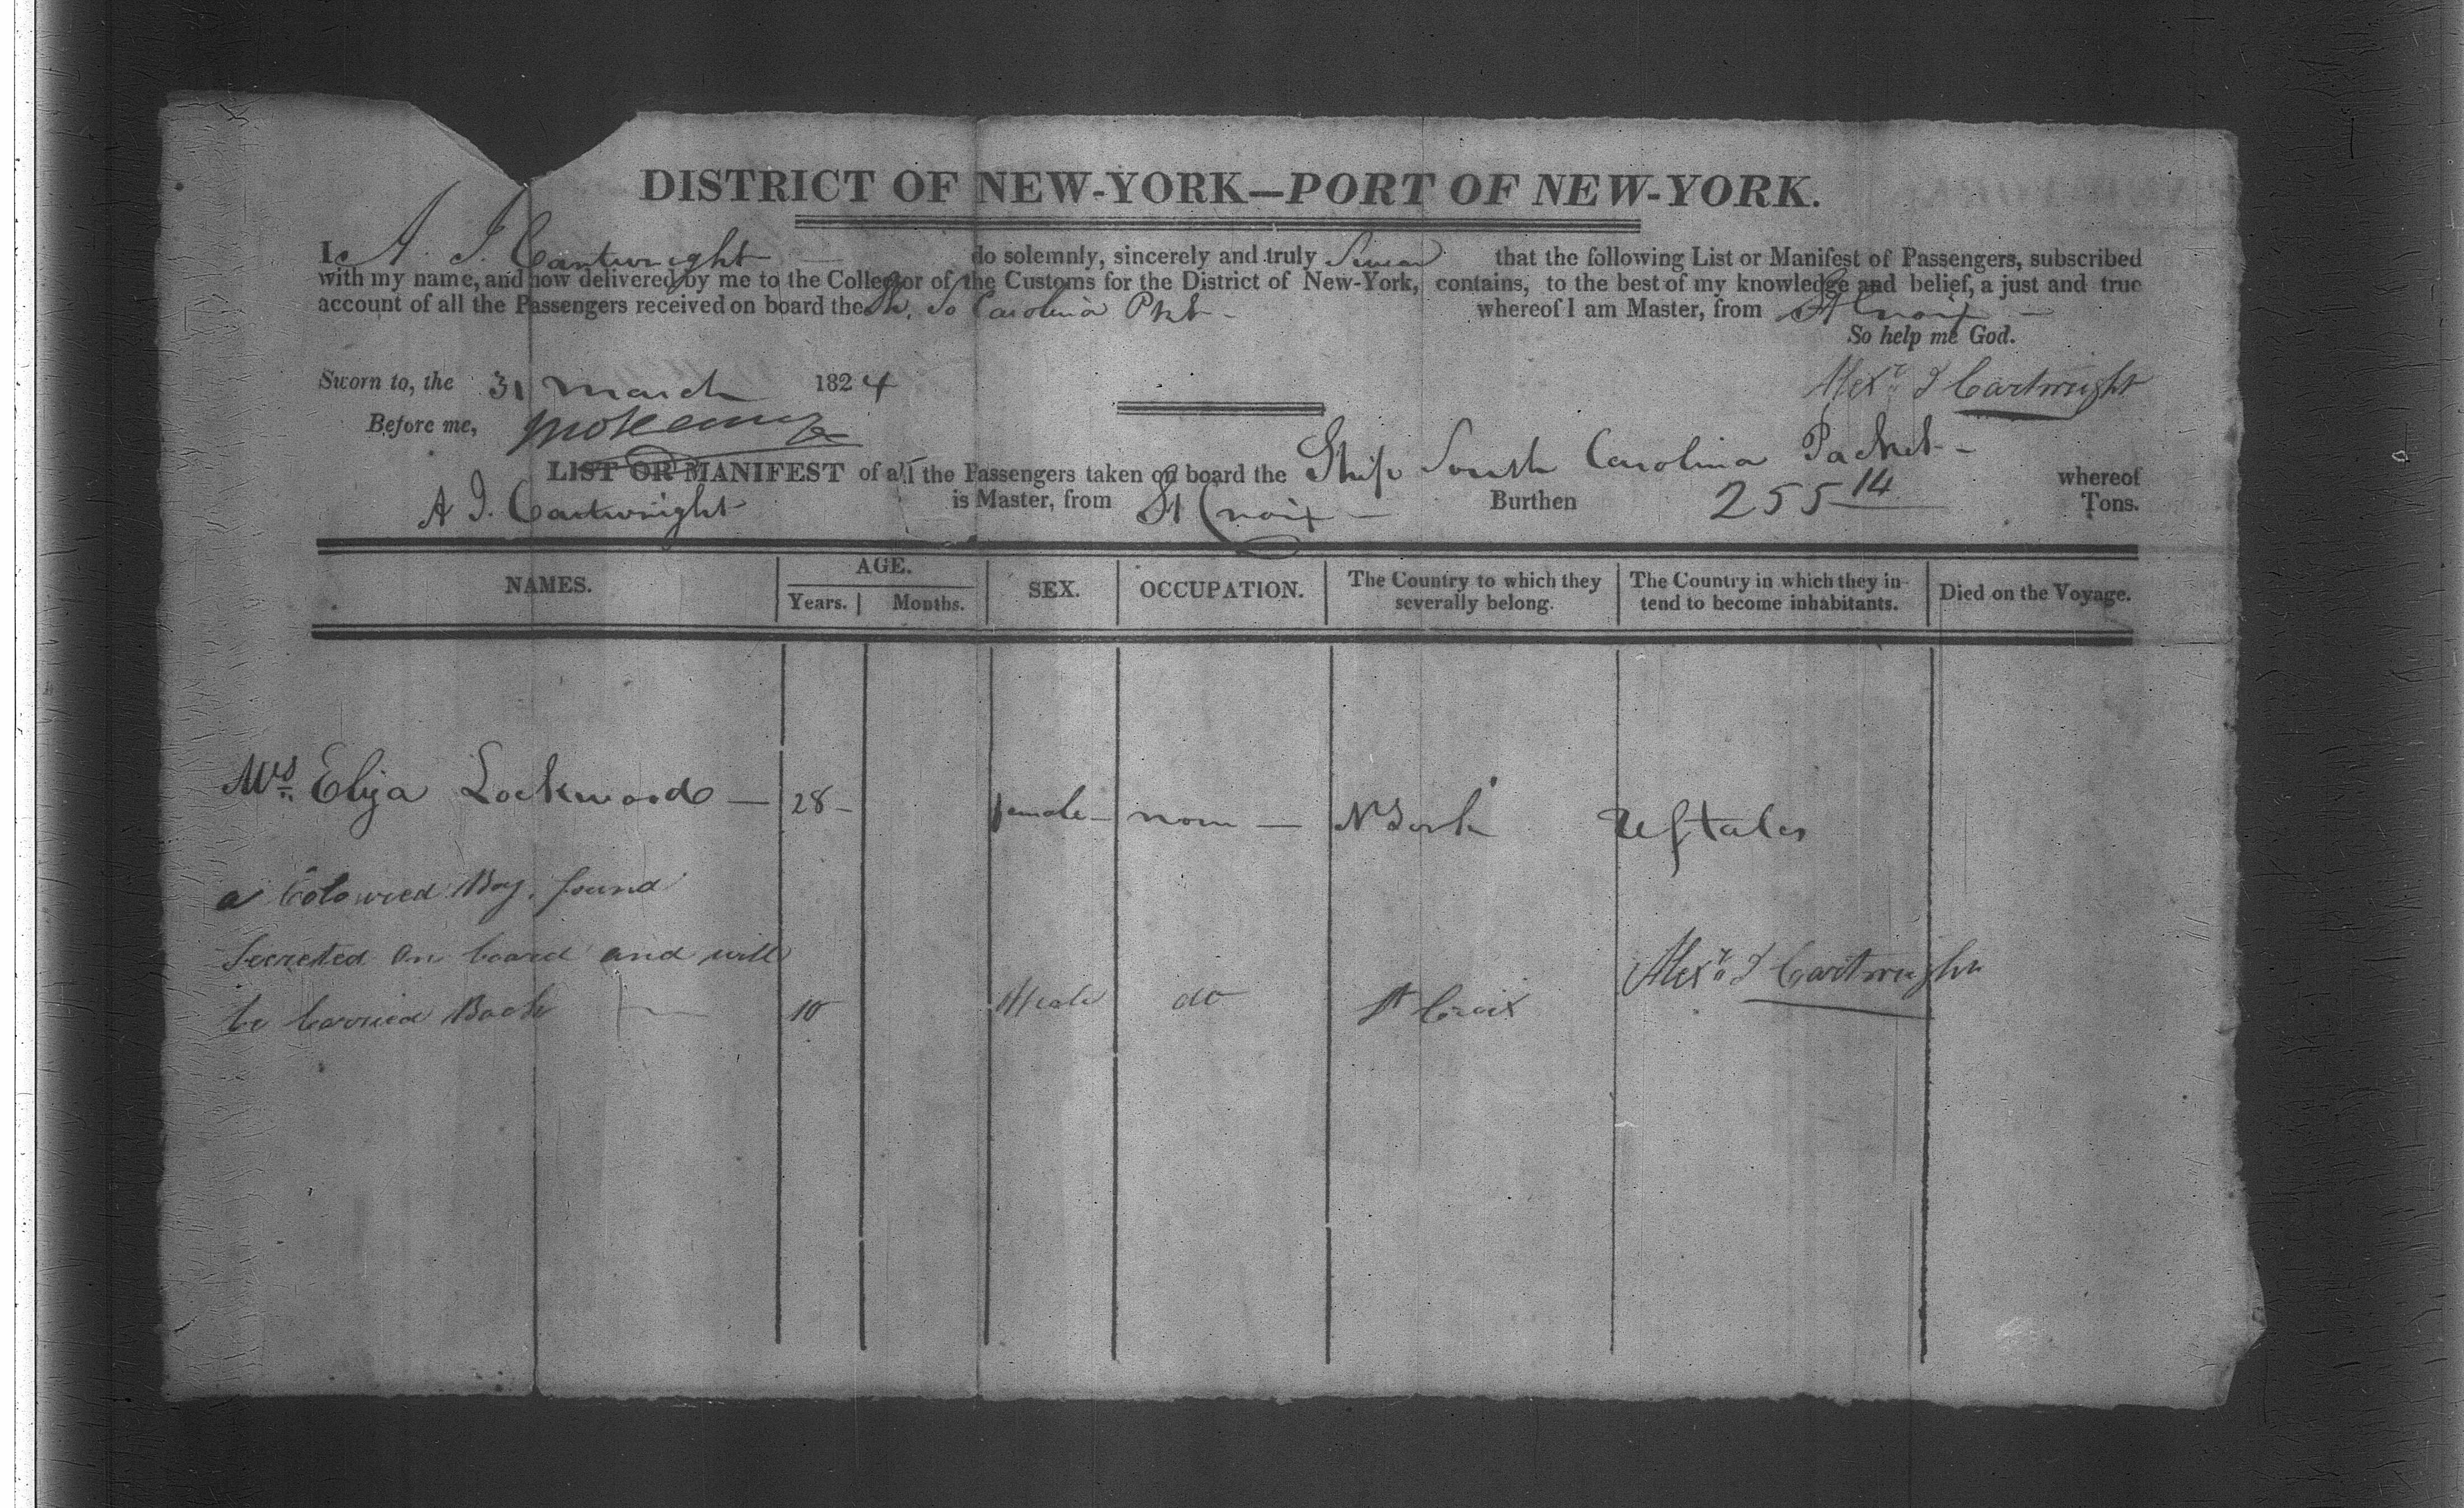 DISTRICT OF NEW-YORK—PORT OF NEW-YORK.
I, A. J. Cartwright do solemnly, sincerely and truly Swear that the following List or Manifest of Passengers, subscribed
with my name, and now delivered by me to the Collector of the Customs for the District of New-York, contains, to the best of my knowledge and belief, a just and true
account of all the Passengers received on board the Sh. So Carolina Pkt - whereof I am Master, from St Croix -
So help me God.
Sworn to, the 31 March 1824
Alexr J Cartwright
Before me,
LIST OR MANIFEST of all the Passengers taken on board the Ship South Carolina Packet - whereof
A J. Cartwright is Master, from St Croix - Burthen 255 14 Tons.
NAMES. AGE. Years. Months. SEX. OCCUPATION. The Country to which they severally belong. The Country in which they intend to become inhabitants. Died on the Voyage.
Mrs Eliza Lockwood — 28 - female - none — N York U States
a Coloured Boy, found
Secreted on board and will
be Carried Back 10 Male do St Croix Alexr J Cartwright